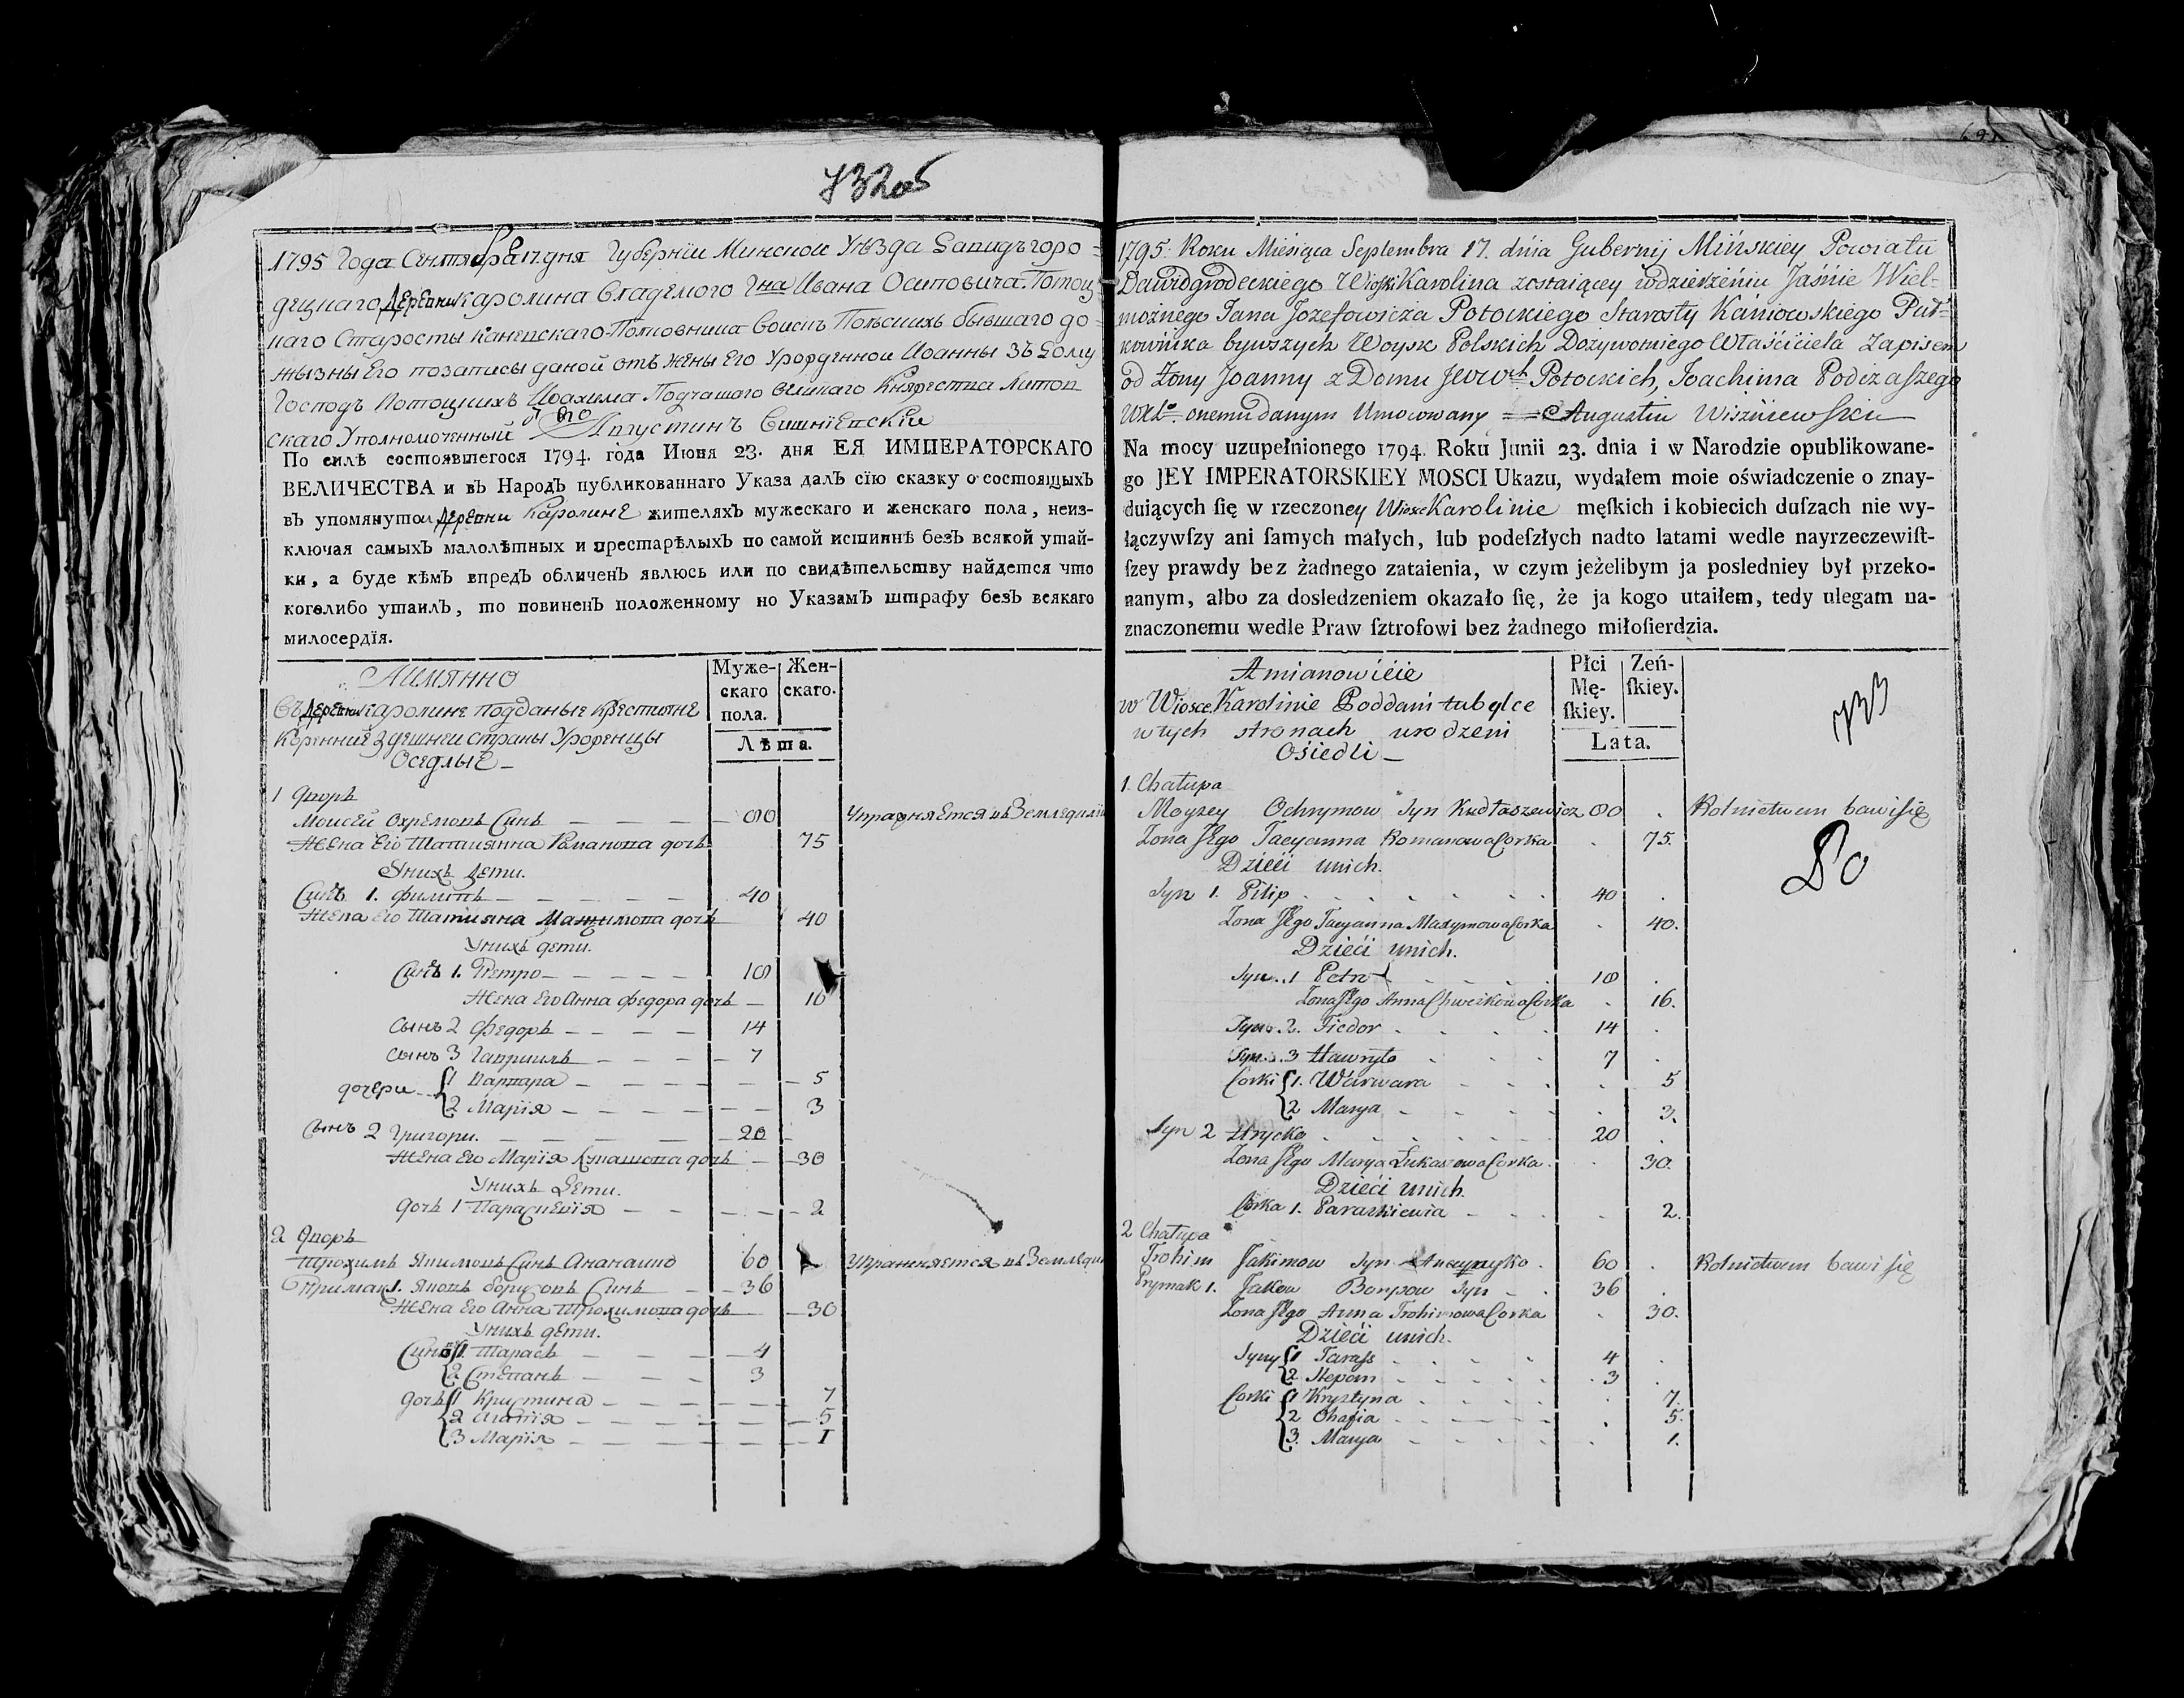 732об
1795 Года Сентября 17 дня Губернїи Минской Уѣзда Давидъгоро=
децкаго Деревни Каролина Владемого Гна Ивана Осиповича Потоц
каго Старосты Каневскаго Полковника Воискъ Польскихъ бывшаго до
жызны Его позаписы даной отъ жены Его Урожденной Иоанны Зъ Дому
Господъ Потоцкихъ Иоахима Подчашого великаго Княжества Литов
скаго Уполномоченный Августинъ Вишнïевскïи
По силѣ состоявшегося 1794. года Июня 23. дня ЕЯ ИМПЕРАТОРСКАГО
ВЕЛИЧЕСТВА и въ Народъ публикованнаго Указа далъ сїю сказку о состоящыхъ
въ упомянутои Деревни Каролине жителяхъ мужескаго и женскаго пола, неиз-
ключая самыхъ малолѣтныхъ и престарѣлыхъ по самой истиннѣ безъ всякой утай-
ки, а буде кѣмъ впредъ обличенъ явлюсь или по свидѣтельству найдется что
коголибо утаилъ, то повиненъ положенному по Указамъ штрафу безъ всякаго
милосердїя.
Аимянно
Муже-скаго пола.
Жен-скаго.
Въ Деревни Каролине подданые крестияне
Коренние Здешнеи страны Уроженцы
Оседлые
Лѣта.
1 Дворъ
Моисей Охремовъ Синъ 80 Упражняется въ Земледелии
Жена Его Татиянна Романова дочь 75
У нихъ Дети.
Синъ 1. Филипъ 40
Жена Его Татияна Мажимова дочь 40
У нихъ дети.
Синъ 1. Петро 18
Жена Его Анна Федора дочь 16
Сынъ 2 Федоръ 14
Сынъ 3 Гавриилъ 7
дочери 1 Варвара 5
2 Марïя 3
Сынъ 2 Григори. 20
Жена Его Марïя Лукашова дочь 30
У нихъ Дети.
дочь 1 Параскевïя 2
2 Дворъ
Трохимъ Якимовъ Синъ 60 Упражняется въ Земледел
Примак 1. Яковъ Борисовъ Синъ 36
Жена Его Анна Трохимова дочь 30
У нихъ дети.
Сины 1. Тарасъ 4
2 Степанъ 3
дочь 1 Кристина 7
2 Агапïя 5
3 Марïя 1
1795: Roku Miesiąca Septembra 17. dnia Gubernij Mińskiey Powiatu
Dawidgrodeckiego Wioski Karolina zostaiącey w dzierżeniu Jaśnie Wiel=
możnego Jana Jozefowicza Potockiego Starosty Kaniowskiego Puł=
kownika bywszych Woysk Polskich Dożywotniego Właściciela Zapisem
od Żony Joanny z Domu JWWch Potockich, Joachima Podczaszego
WXLo onemu danym Umocowany Augustin Wiszniewski
Na mocy uzupełnionego 1794. Roku Junii 23. dnia i w Narodzie opublikowane-
go JEY IMPERATORSKIEY MOSCI Ukazu, wydałem moie oświadczenie o znay-
duiących ſię w rzeczoney Wiosce Karolinie męſkich i kobiecich duſzach nie wy-
łączywſzy ani ſamych małych, lub podeſzłych nadto latami wedle nayrzeczewiſt-
ſzey prawdy bez żadnego zataienia, w czym jeżelibym ja posledniey był przeko-
nanym, albo za dosledzeniem okazało ſię, że ja kogo utaiłem, tedy ulegam na-
znaczonemu wedle Praw ſztrofowi bez żadnego miłoſierdzia.
Amianowicie
Płci Mę-ſkiey.
Żeń-ſkiey.
733
w Wiosce Karolinie Poddani tubylce
w tych stronach urodzeni
Osiedli
Lata.
1. Chałupa
Moyzey Ochrymow Syn Kudłaszewicz 80 Rolnictwem bawi się
Żona Jego Tacyanna Romanowa Corka 75.
Dzieci unich.
Syn 1. Pilip 40
Żona Jego Tacyanna Maxymowa Corka 40.
Dzieci unich.
Syn 1 Petro 18
Żona Jego Anna Corka 16.
Syn 2. Fiedor 14
Syn 3 Hawryło 7
Corki 1. Warwara 5
2 Marya 3.
Syn 2 Hrycko 20
Żona Jego Marya Łukaszowa Corka 30.
Dzieci unich.
Córka 1. Paraskiewia 2.
2 Chałupa
Trohim Jakimow Syn 60 Rolnictwem bawi się
Prymak 1. Jakow Syn 36
Żona Jego Anna Trohimowa Corka 30.
Dzieci unich.
Syny 1 Tarass 4
2 Stepan 3
Corki 1 Krystyna 7.
2 Ohafia 5.
3. Marya 1.